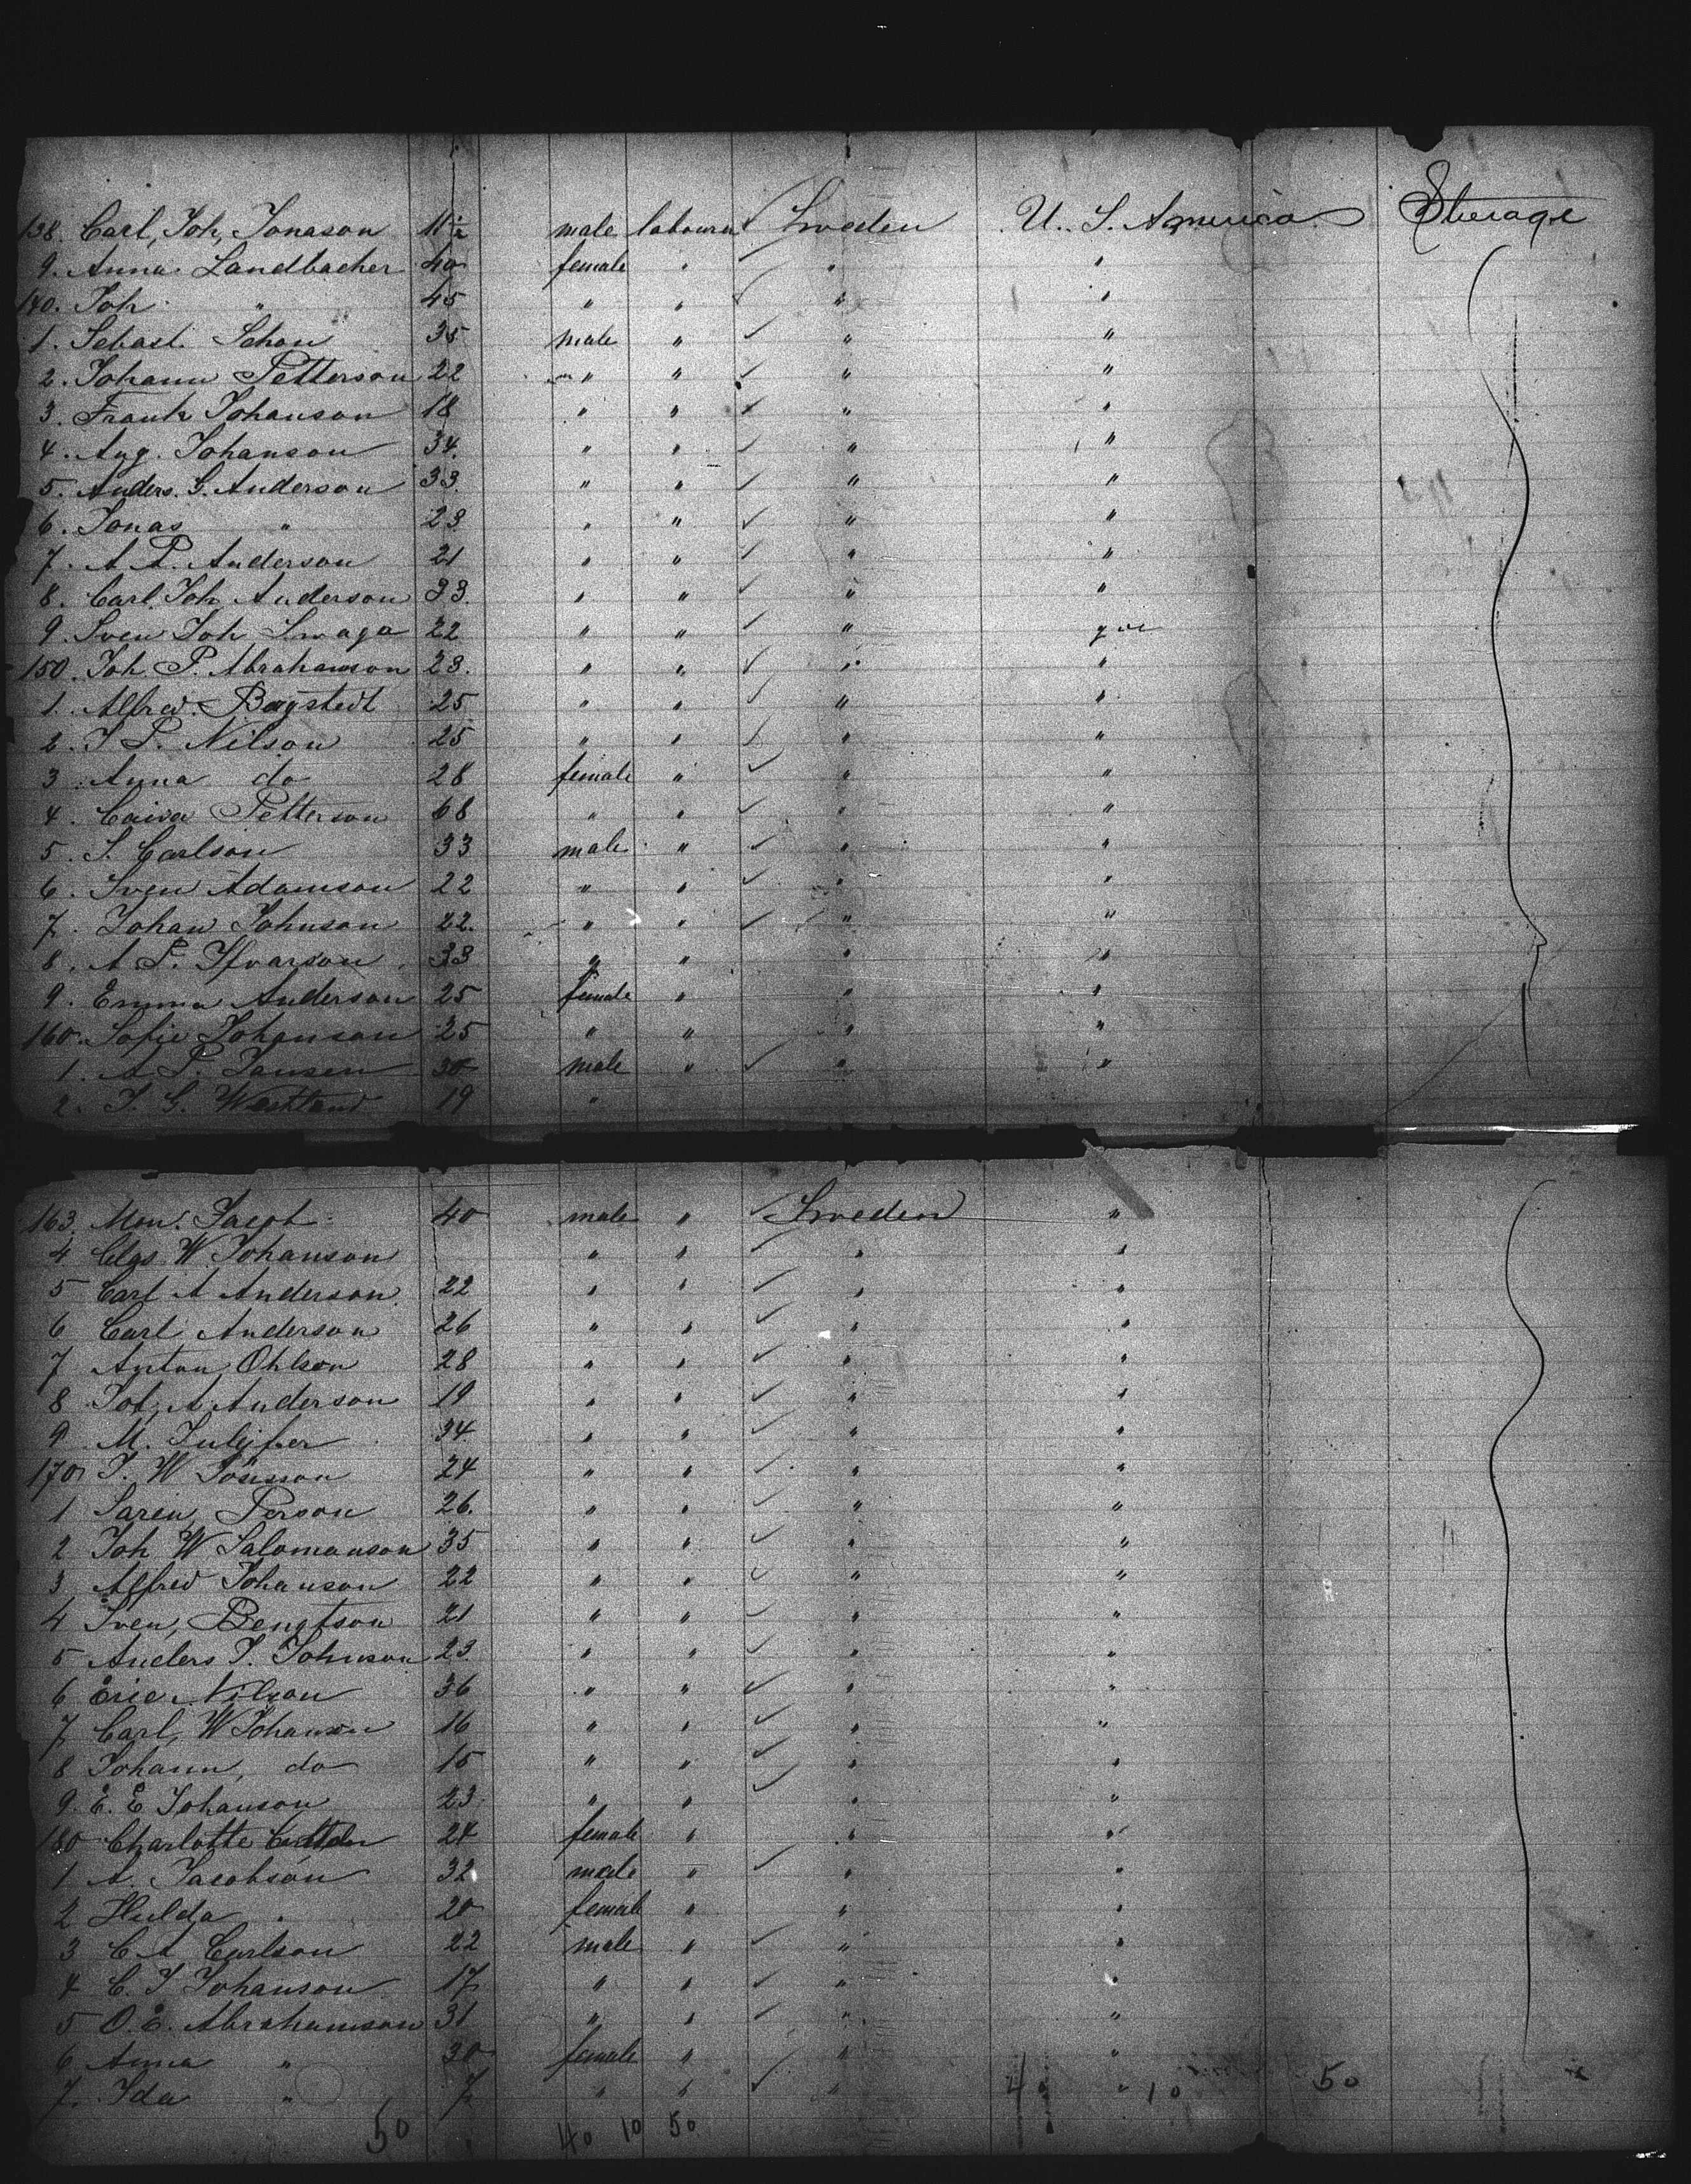 138. Carl, Joh, Jonason 11 1/2 male labourer Sweden U. S. America Steerage
9. Anna Landbacher 40 female " " "
140. Joh " 45 " " " "
1. Sebast. Schon 35 male " " "
2. Johann Petterson 22 " " " "
3. Frank Johanson 18 " " " "
4. Aug. Johanson 34. " " " "
5. Anders. G. Anderson 33. " " " "
6. Jonas " 23 " " " "
7. A. P. Anderson 21 " " " "
8. Carl. Joh Anderson 33. " " " "
9. Sven Joh Swaga 22 " " "
150. Joh. P. Abrahamson 23. " " " "
1. Alfred. Bagstedt 25 " " " "
2. J P. Nilson 25 " " " "
3 Anna do 28 female " " "
4. Caiva Petterson 68 " " " "
5. S. Carlson 33 male " " "
6. Sven Adamson 22 " " " "
7. Johan Johnson 22. " " " "
8. A P. Ifvarson 33 " " " "
9. Emma Anderson 25 female " " "
160. Sofie Johanson 25 " " " "
1. A P. Jansen 30 male " " "
2. J. G. 19 "
163. Mon. Jacob 40 male " Sweden "
4 Clas W. Johanson " " " "
5 Carl A Anderson 22 " " " "
6 Carl Anderson 26 " " " "
7 Anton Ohlson 28 " " " "
8 Joh, A. Anderson 19 " " " "
9 M. 34 " " " "
170 J. W Jonsson 24 " " " "
1 Saren, Person 26. " " " "
2 Joh W Salomonson 35 " " " "
3 Alfred Johanson 22 " " " "
4 Sven, Bengtson 21 " " " "
5 Anders J. Johnson 23 " " " "
6 Eric Nilson 36 " " " "
7 Carl, W Johanson 16 " " " "
8 Johann, do 15 " " " "
9. E. E Johanson 23. " " " "
180 Charlotte 24 female " " "
1 A. Jacobson 32 male " " "
2 Hulda " 20 female " " "
3 C A Carlson 22 male " " "
4 C. J Johanson 17 " " " "
5 O. E. Abrahamson 31 " " " "
6 Anna " 30 female " " "
7. Ida " 7. " " " " 10 50
50 40 10 50